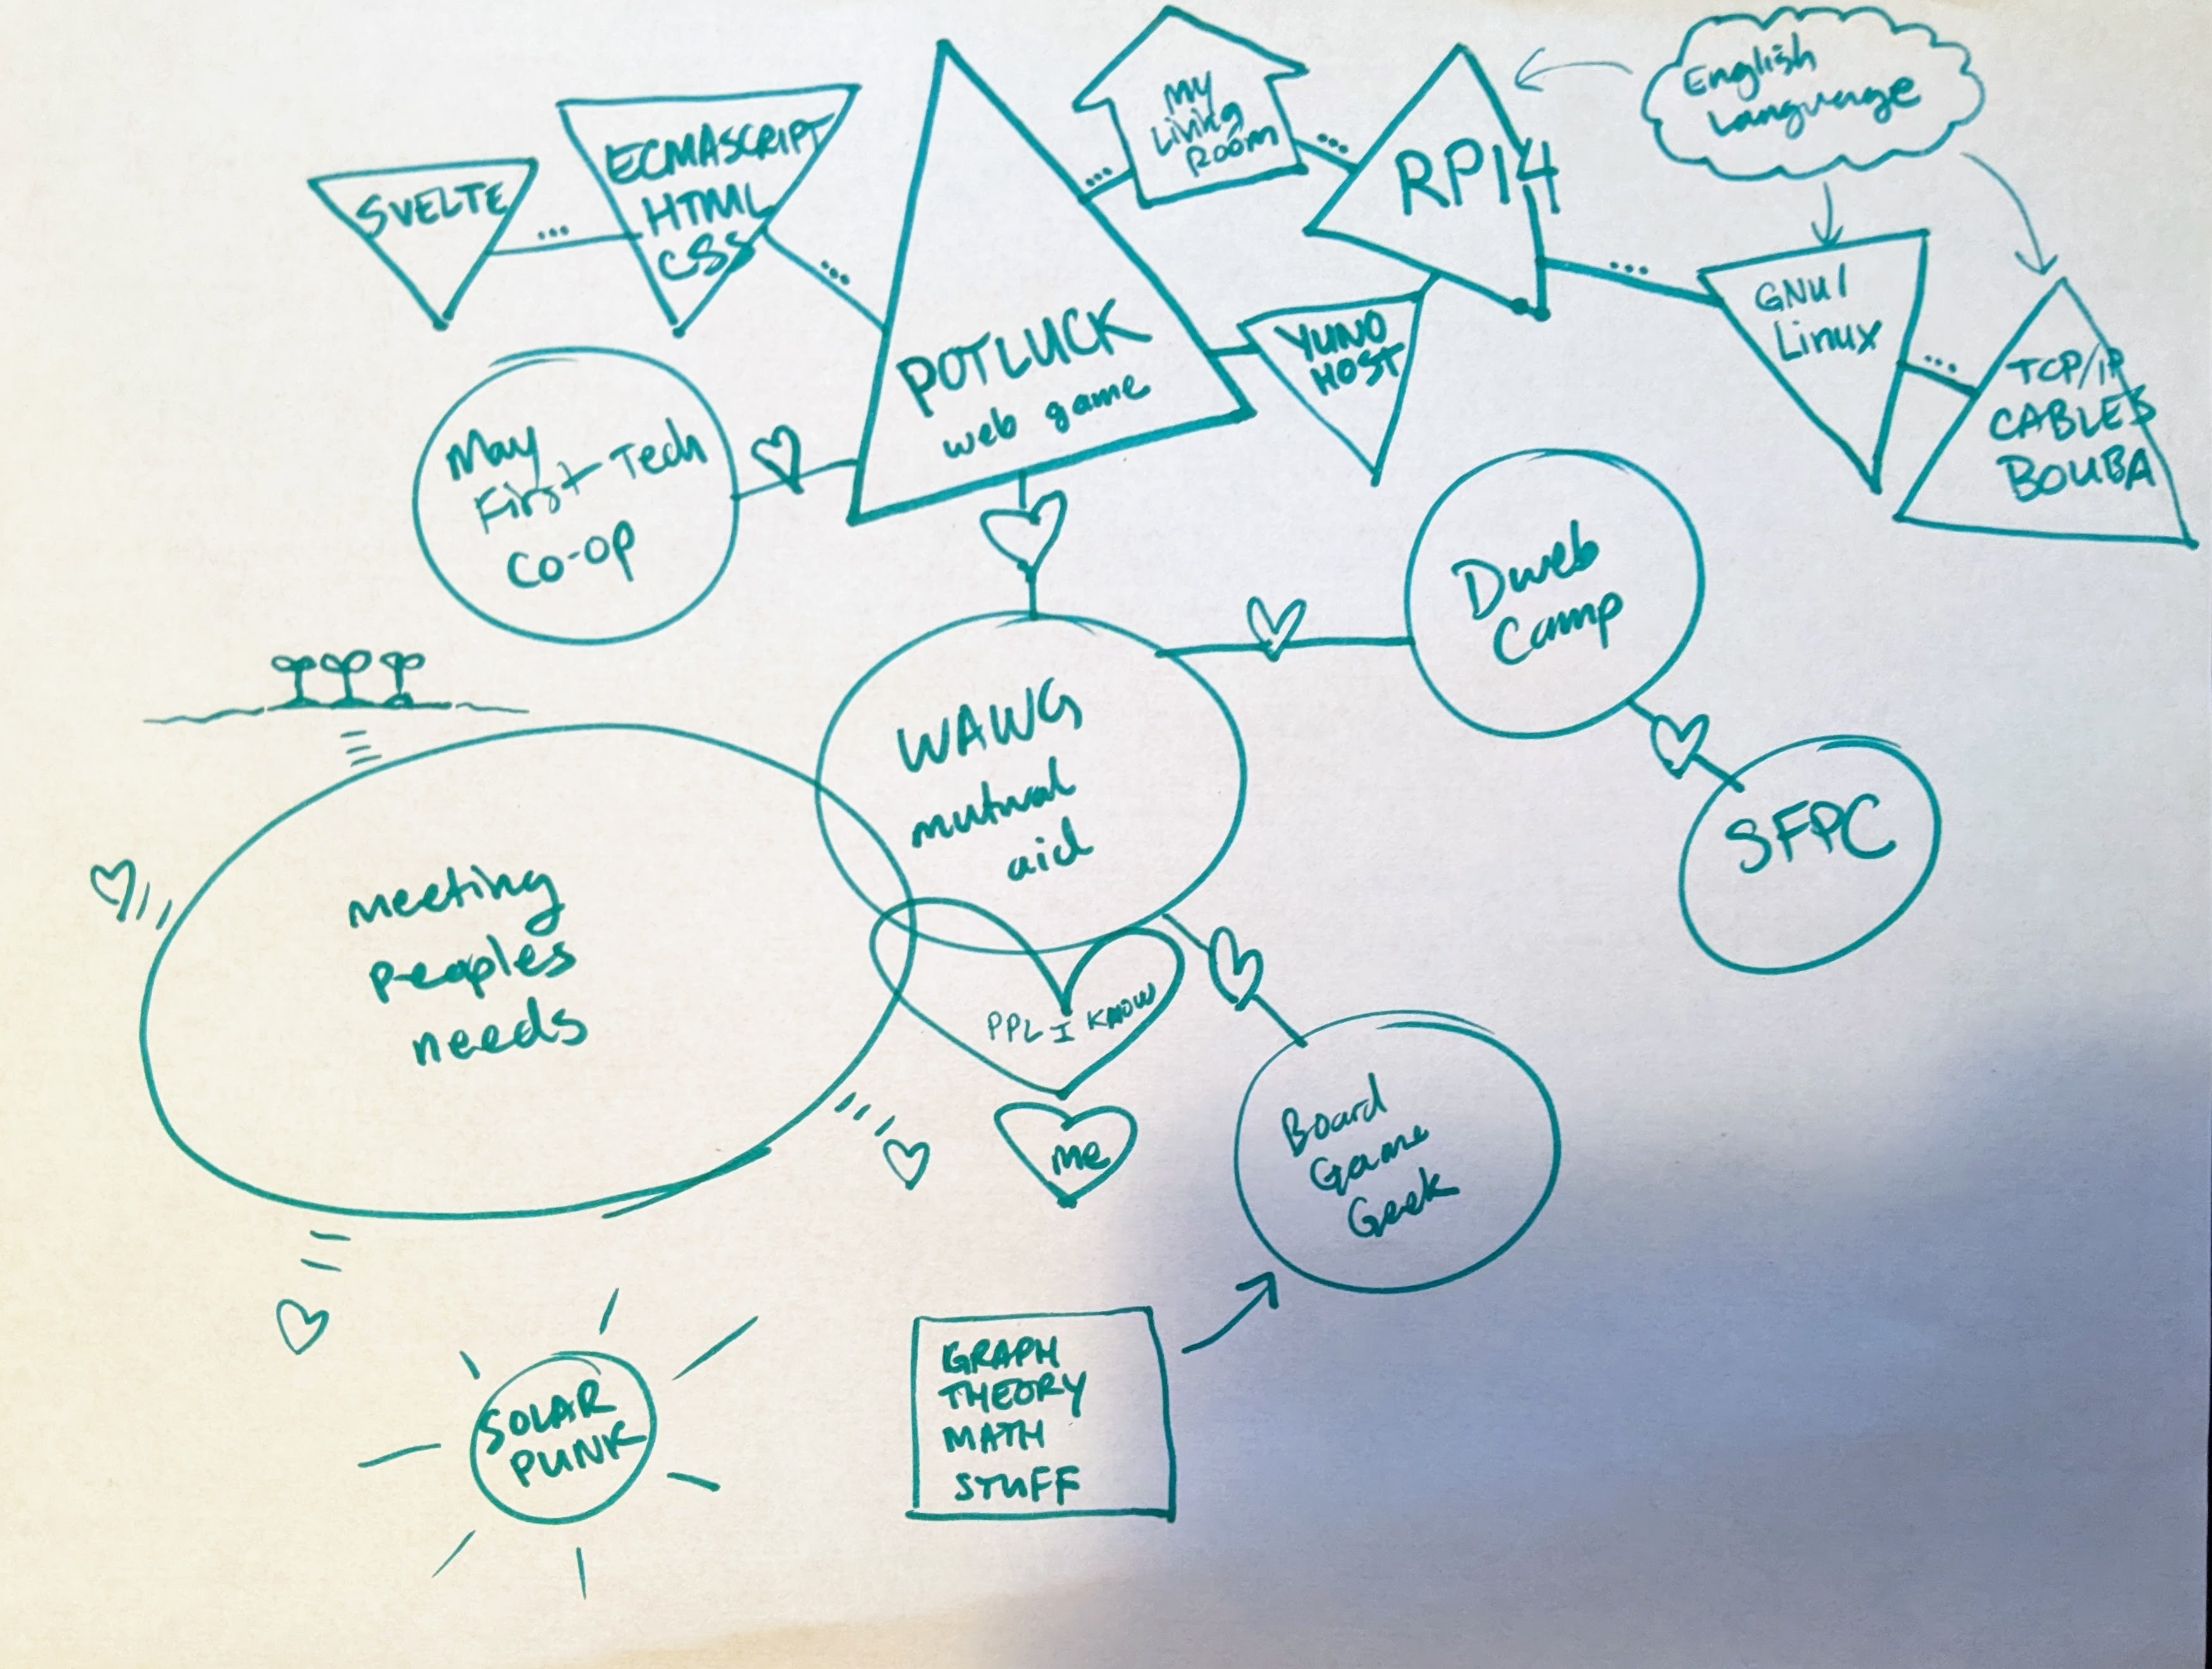 My
Living
Room
English
Language
SVELTE
ECMASCRIPT
HTML
CSS
RPI4
POTLUCK
web game
YUNO
HOST
GNU/
Linux
TCP/IP
CABLES
BOUBA
May
First Tech
Co-op
Dweb
Camp
WAWG
mutual
aid
SFPC
meeting
peoples
needs
PPL I KNOW
me
Board
Game
Geek
SOLAR
PUNK
GRAPH
THEORY
MATH
STUFF